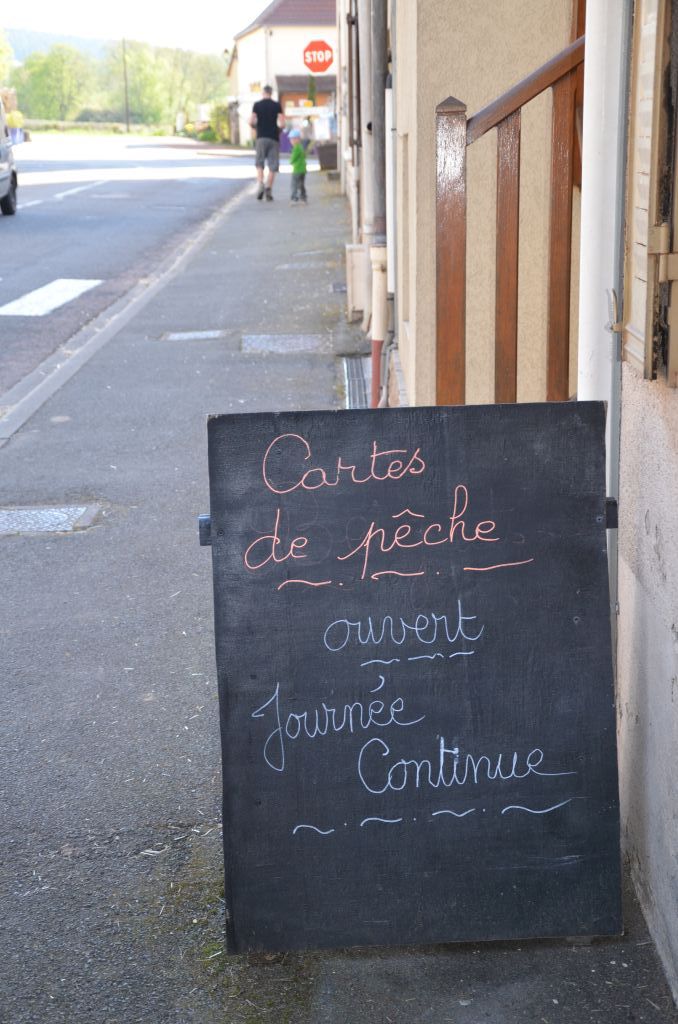 STOP
Cartes
de pêche
ouvert
Journée
Continue